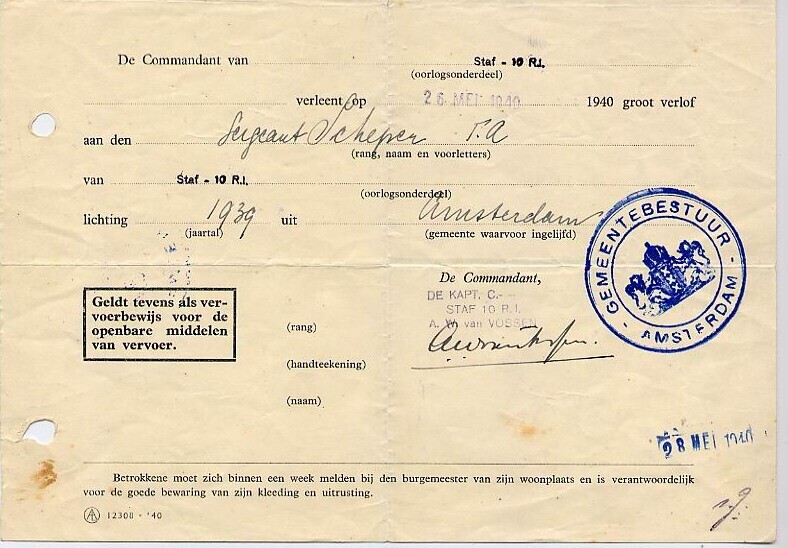 De Commandant van Staf - 10 R.I.
(oorlogsonderdeel)
verleent op 26 MEI 1940 1940 groot verlof
aan den Sergeant Scheper T.A
(rang, naam en voorletters)
van Staf - 10 R.I.
(oorlogsonderdeel)
lichting 1939 uit Amsterdam
(jaartal) (gemeente waarvoor ingelijfd)
GEMEENTEBESTUUR - AMSTERDAM -
Geldt tevens als ver-
voerbewijs voor de
openbare middelen
van vervoer.
De Commandant,
DE KAPT. C.-
STAF 10 R.I.
A. W. van VOSSEN
(rang)
(handteekening)
(naam)
28 MEI 1940
Betrokkene moet zich binnen een week melden bij den burgemeester van zijn woonplaats en is verantwoordelijk
voor de goede bewaring van zijn kleeding en uitrusting.
12308 - '40